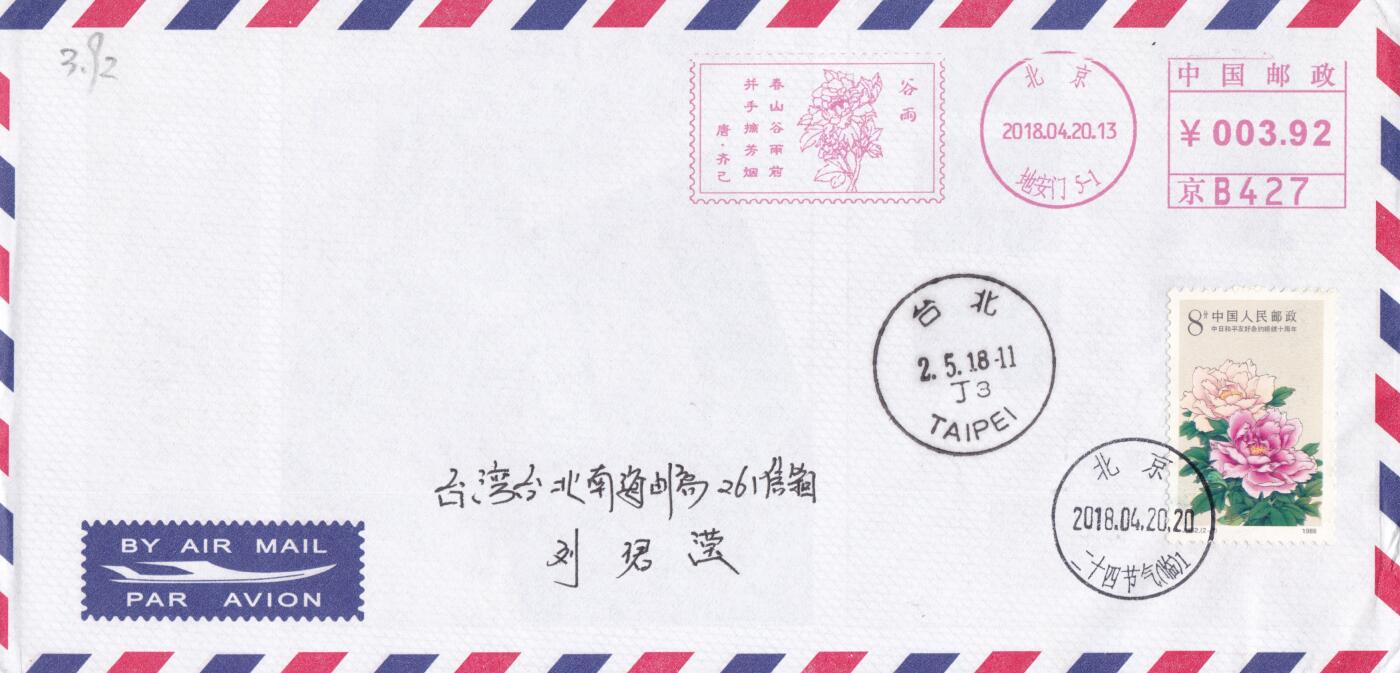 3.92
谷雨
春山谷雨前
并手摘芳烟
唐·齐己
北京
2018.04.20.13
地安门 5-1
中国邮政
¥ 003.92
京B427
台北
2.5.18-11
J3
TAIPEI
8分 中国人民邮政
中日和平友好条约缔结十周年
1988
北京
2018.04.20.20
二十四节气(临)1
台湾台北南海邮局261信箱
刘珺滢
BY AIR MAIL
PAR AVION